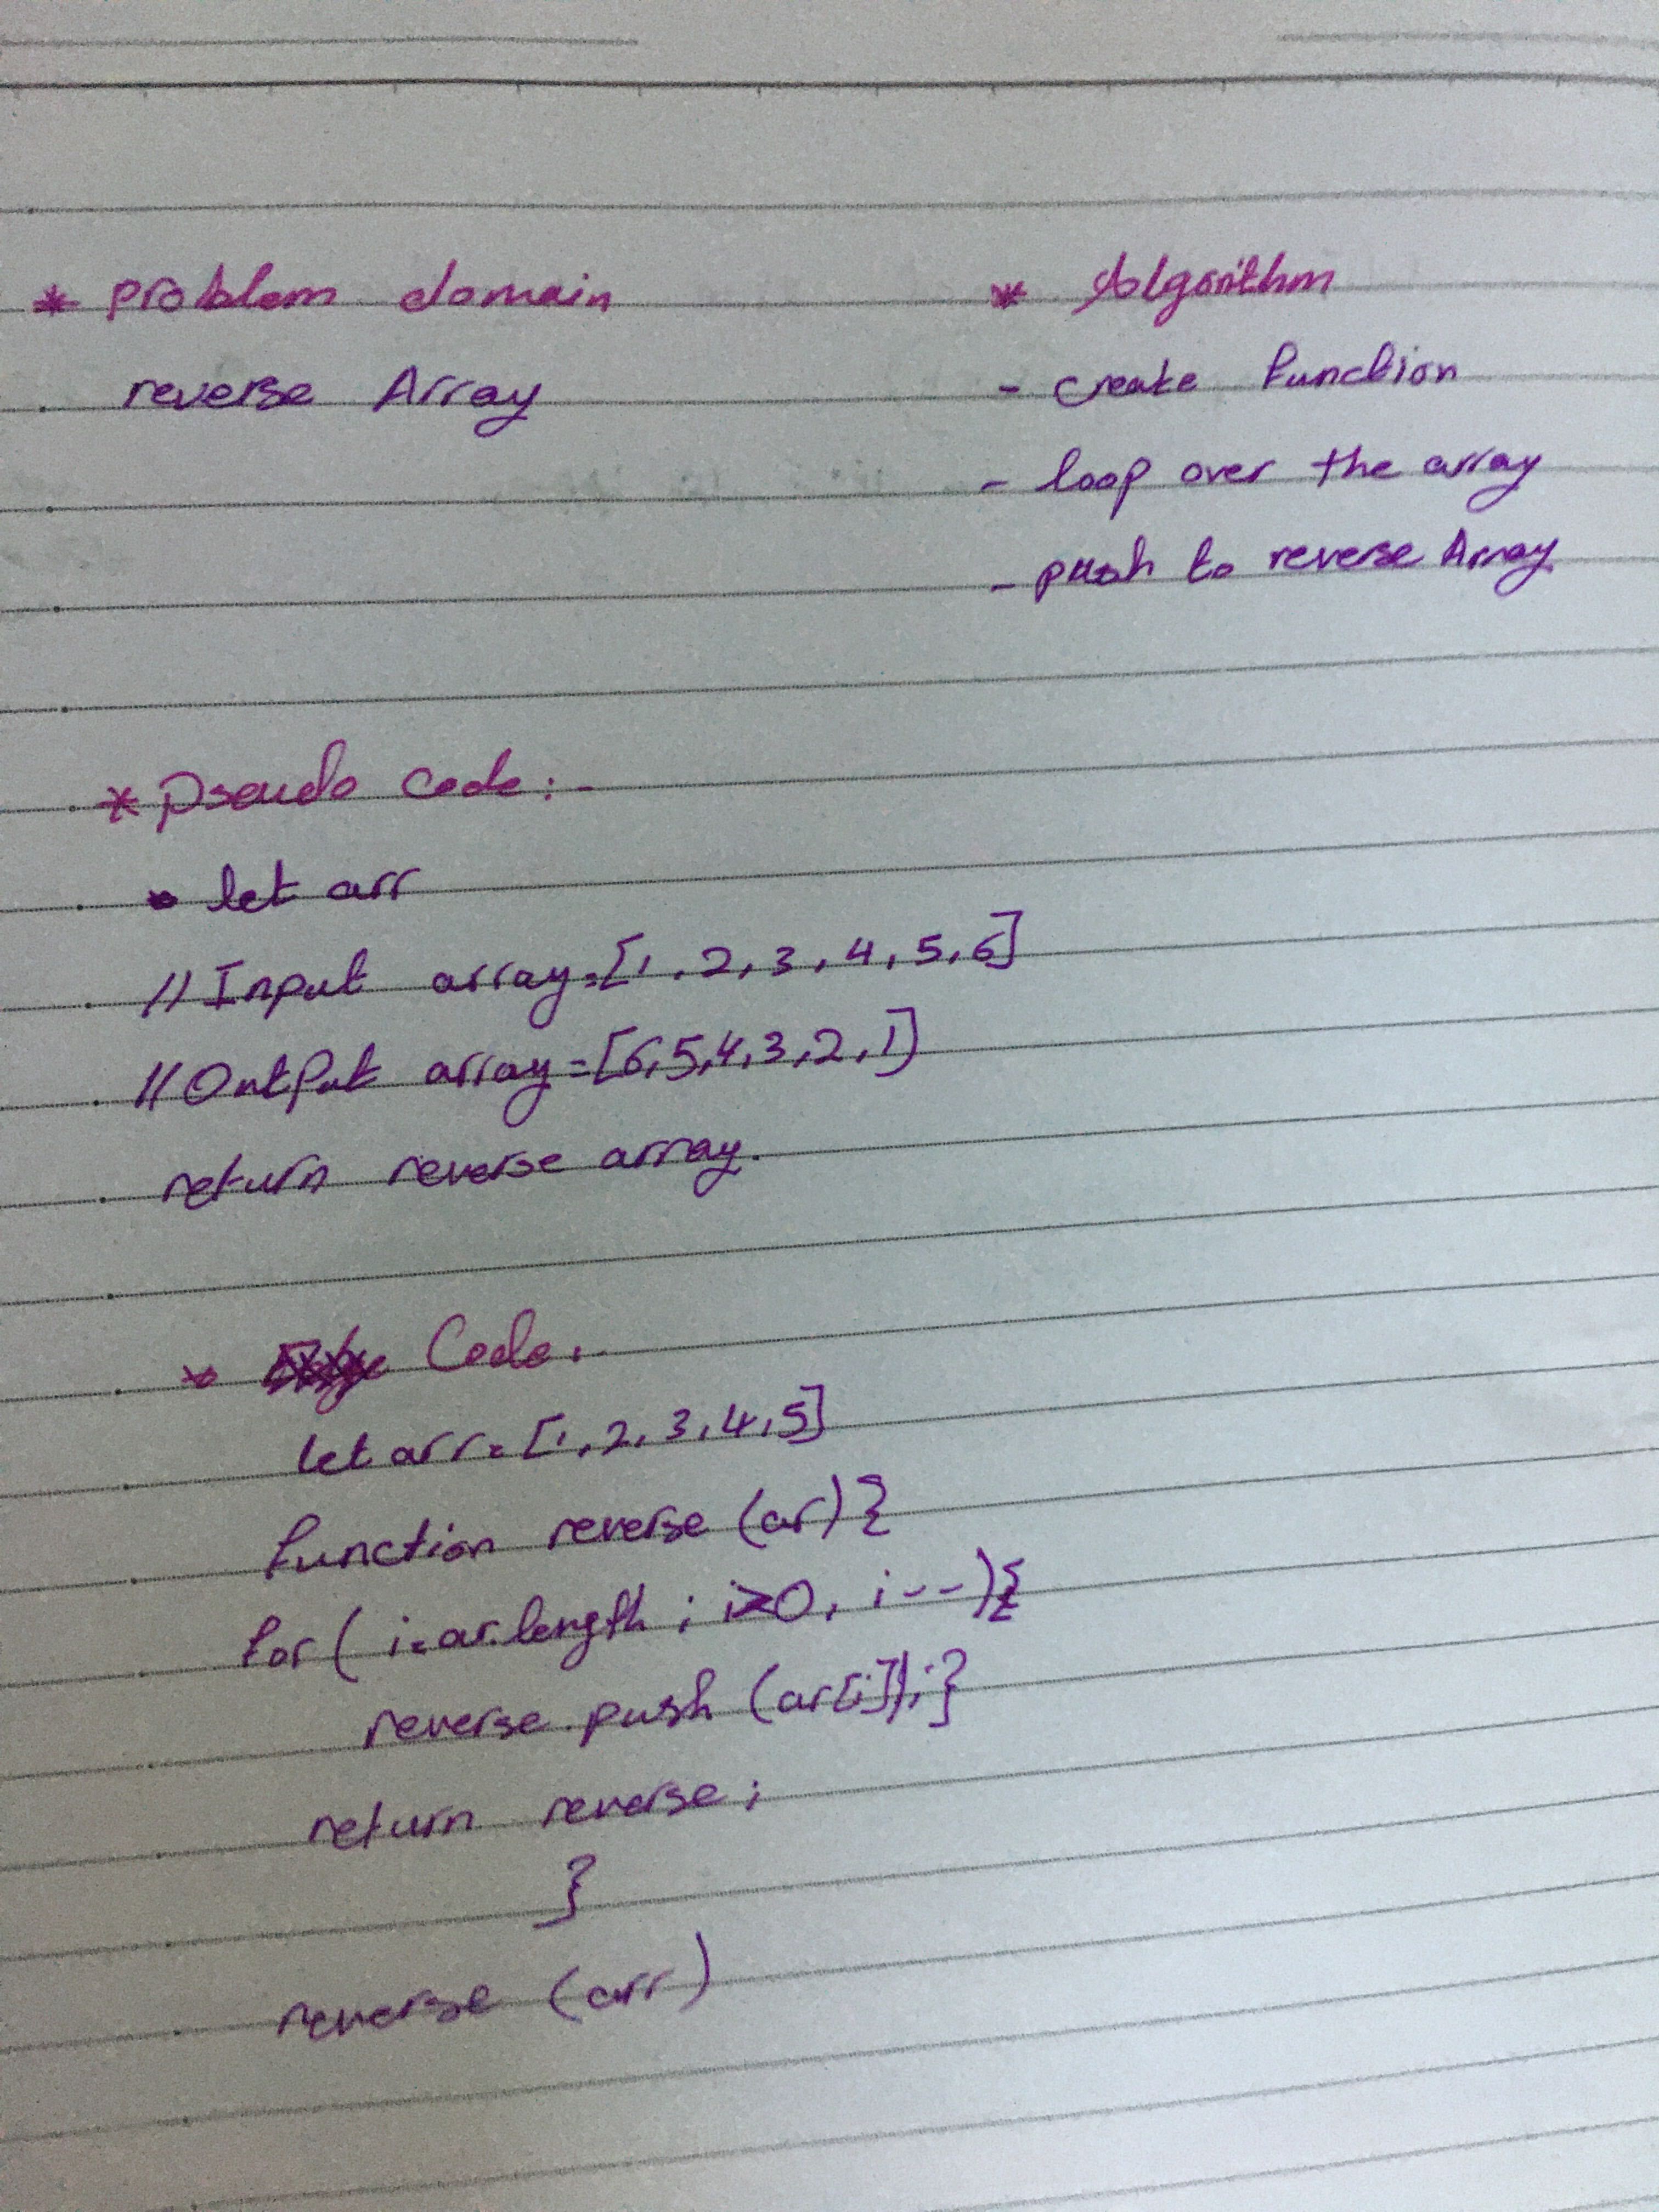 * problem domain
reverse Array
* Algorithm
- create function
- loop over the array
- push to reverse Array
* Pseudo code:-
let arr
// Input array=[1,2,3,4,5,6]
// Output array=[6,5,4,3,2,1]
return reverse array.
* Code:-
let arr=[1,2,3,4,5]
function reverse (ar){
for( i=ar.length ; i>0, i--){
reverse.push (ar[i]);}
return reverse;
}
reverse (arr)